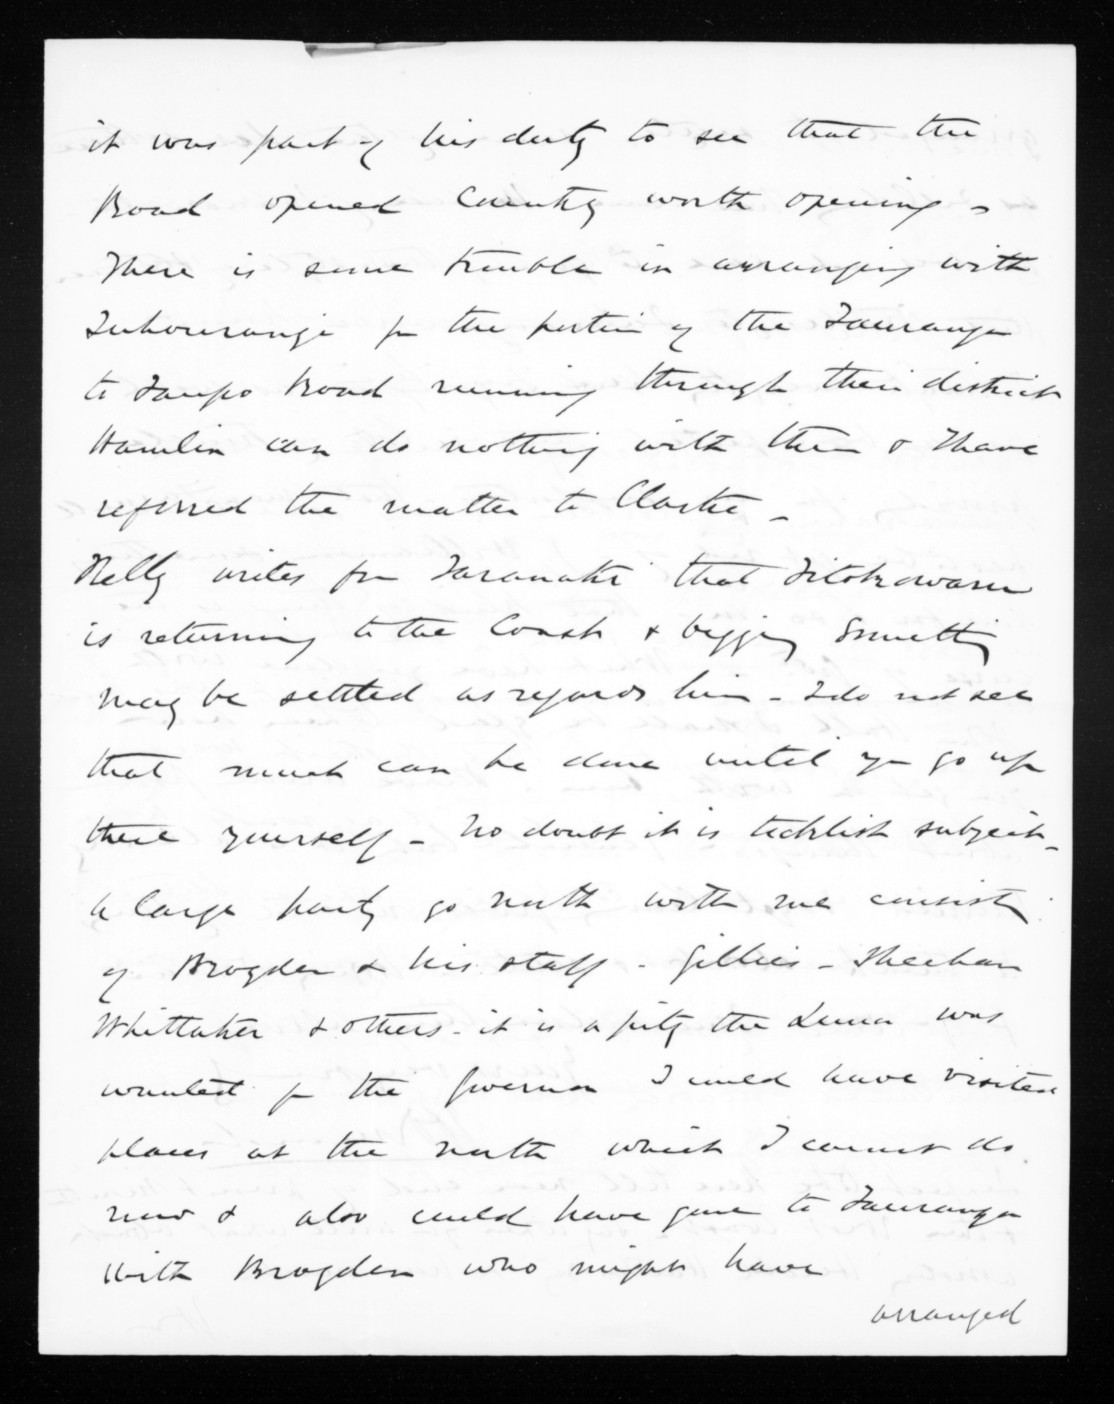 it was part of his duty to see that the
Road opened Country worth opening -
There is some trouble in arranging with
Tuhourangi for the portion of the Tauranga
to Taupo Road running through their district
Hamlin can do nothing with them & I have
referred the matter to Clarke -
Kelly writes from Taranaki that Titokowaru
is returning to the Coast & begging Something
may be settled as regards him - I do not see
that much can be done until you go up
there yourself - No doubt it is ticklish subject -
A large party go north with me consistg
of Brogden & his staff - Gillies - Sheehan
Whittaker & others - it is a pity the Luna was
wanted for the Governor I could have visited
places at the north which I cannot do
now & also could have gone to Tauranga
with Brogden who might have
arranged